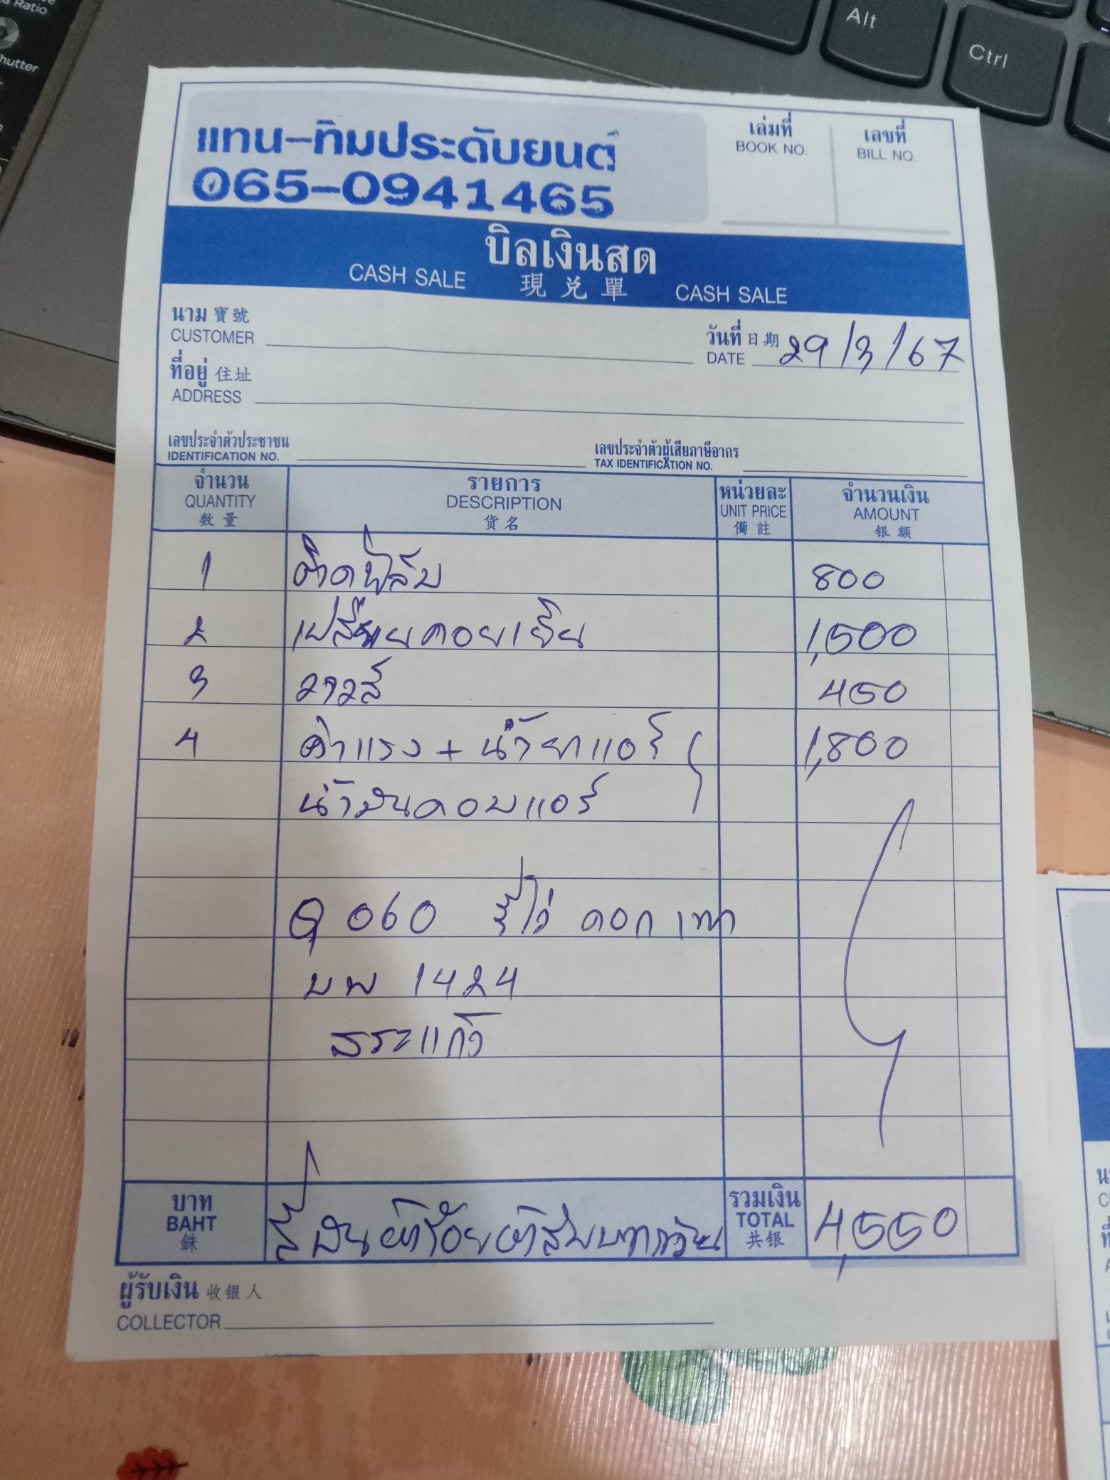 Alt
Ctrl
Ratio
hutter
แทน-ทิมประดับยนต์
065-0941465
เล่มที่
BOOK NO.
เลขที่
BILL NO.
บิลเงินสด
CASH SALE 現兌單 CASH SALE
นาม 寶號
CUSTOMER
วันที่ 日期
DATE 29/3/67
ที่อยู่ 住址
ADDRESS
เลขประจำตัวประชาชน
IDENTIFICATION NO.
เลขประจำตัวผู้เสียภาษีอากร
TAX IDENTIFICATION NO.
จำนวน รายการ หน่วยละ จำนวนเงิน
QUANTITY DESCRIPTION UNIT PRICE AMOUNT
数量 貨名 備註 银额
1 ติดฟิล์ม 800
2 เปลี่ยนคอยเย็น 1,500
3 วาวล์ 450
4 ค่าแรง + น้ำยาแอร์ 1,800
น้ำมันคอมแอร์
060 รีโว่ ตอก เทา
บพ 1424
สระแก้ว
บาท
BAHT
銖
สี่พันห้าร้อยห้าสิบบาทถ้วน
รวมเงิน
TOTAL
共银
4,550
ผู้รับเงิน 收银人
COLLECTOR